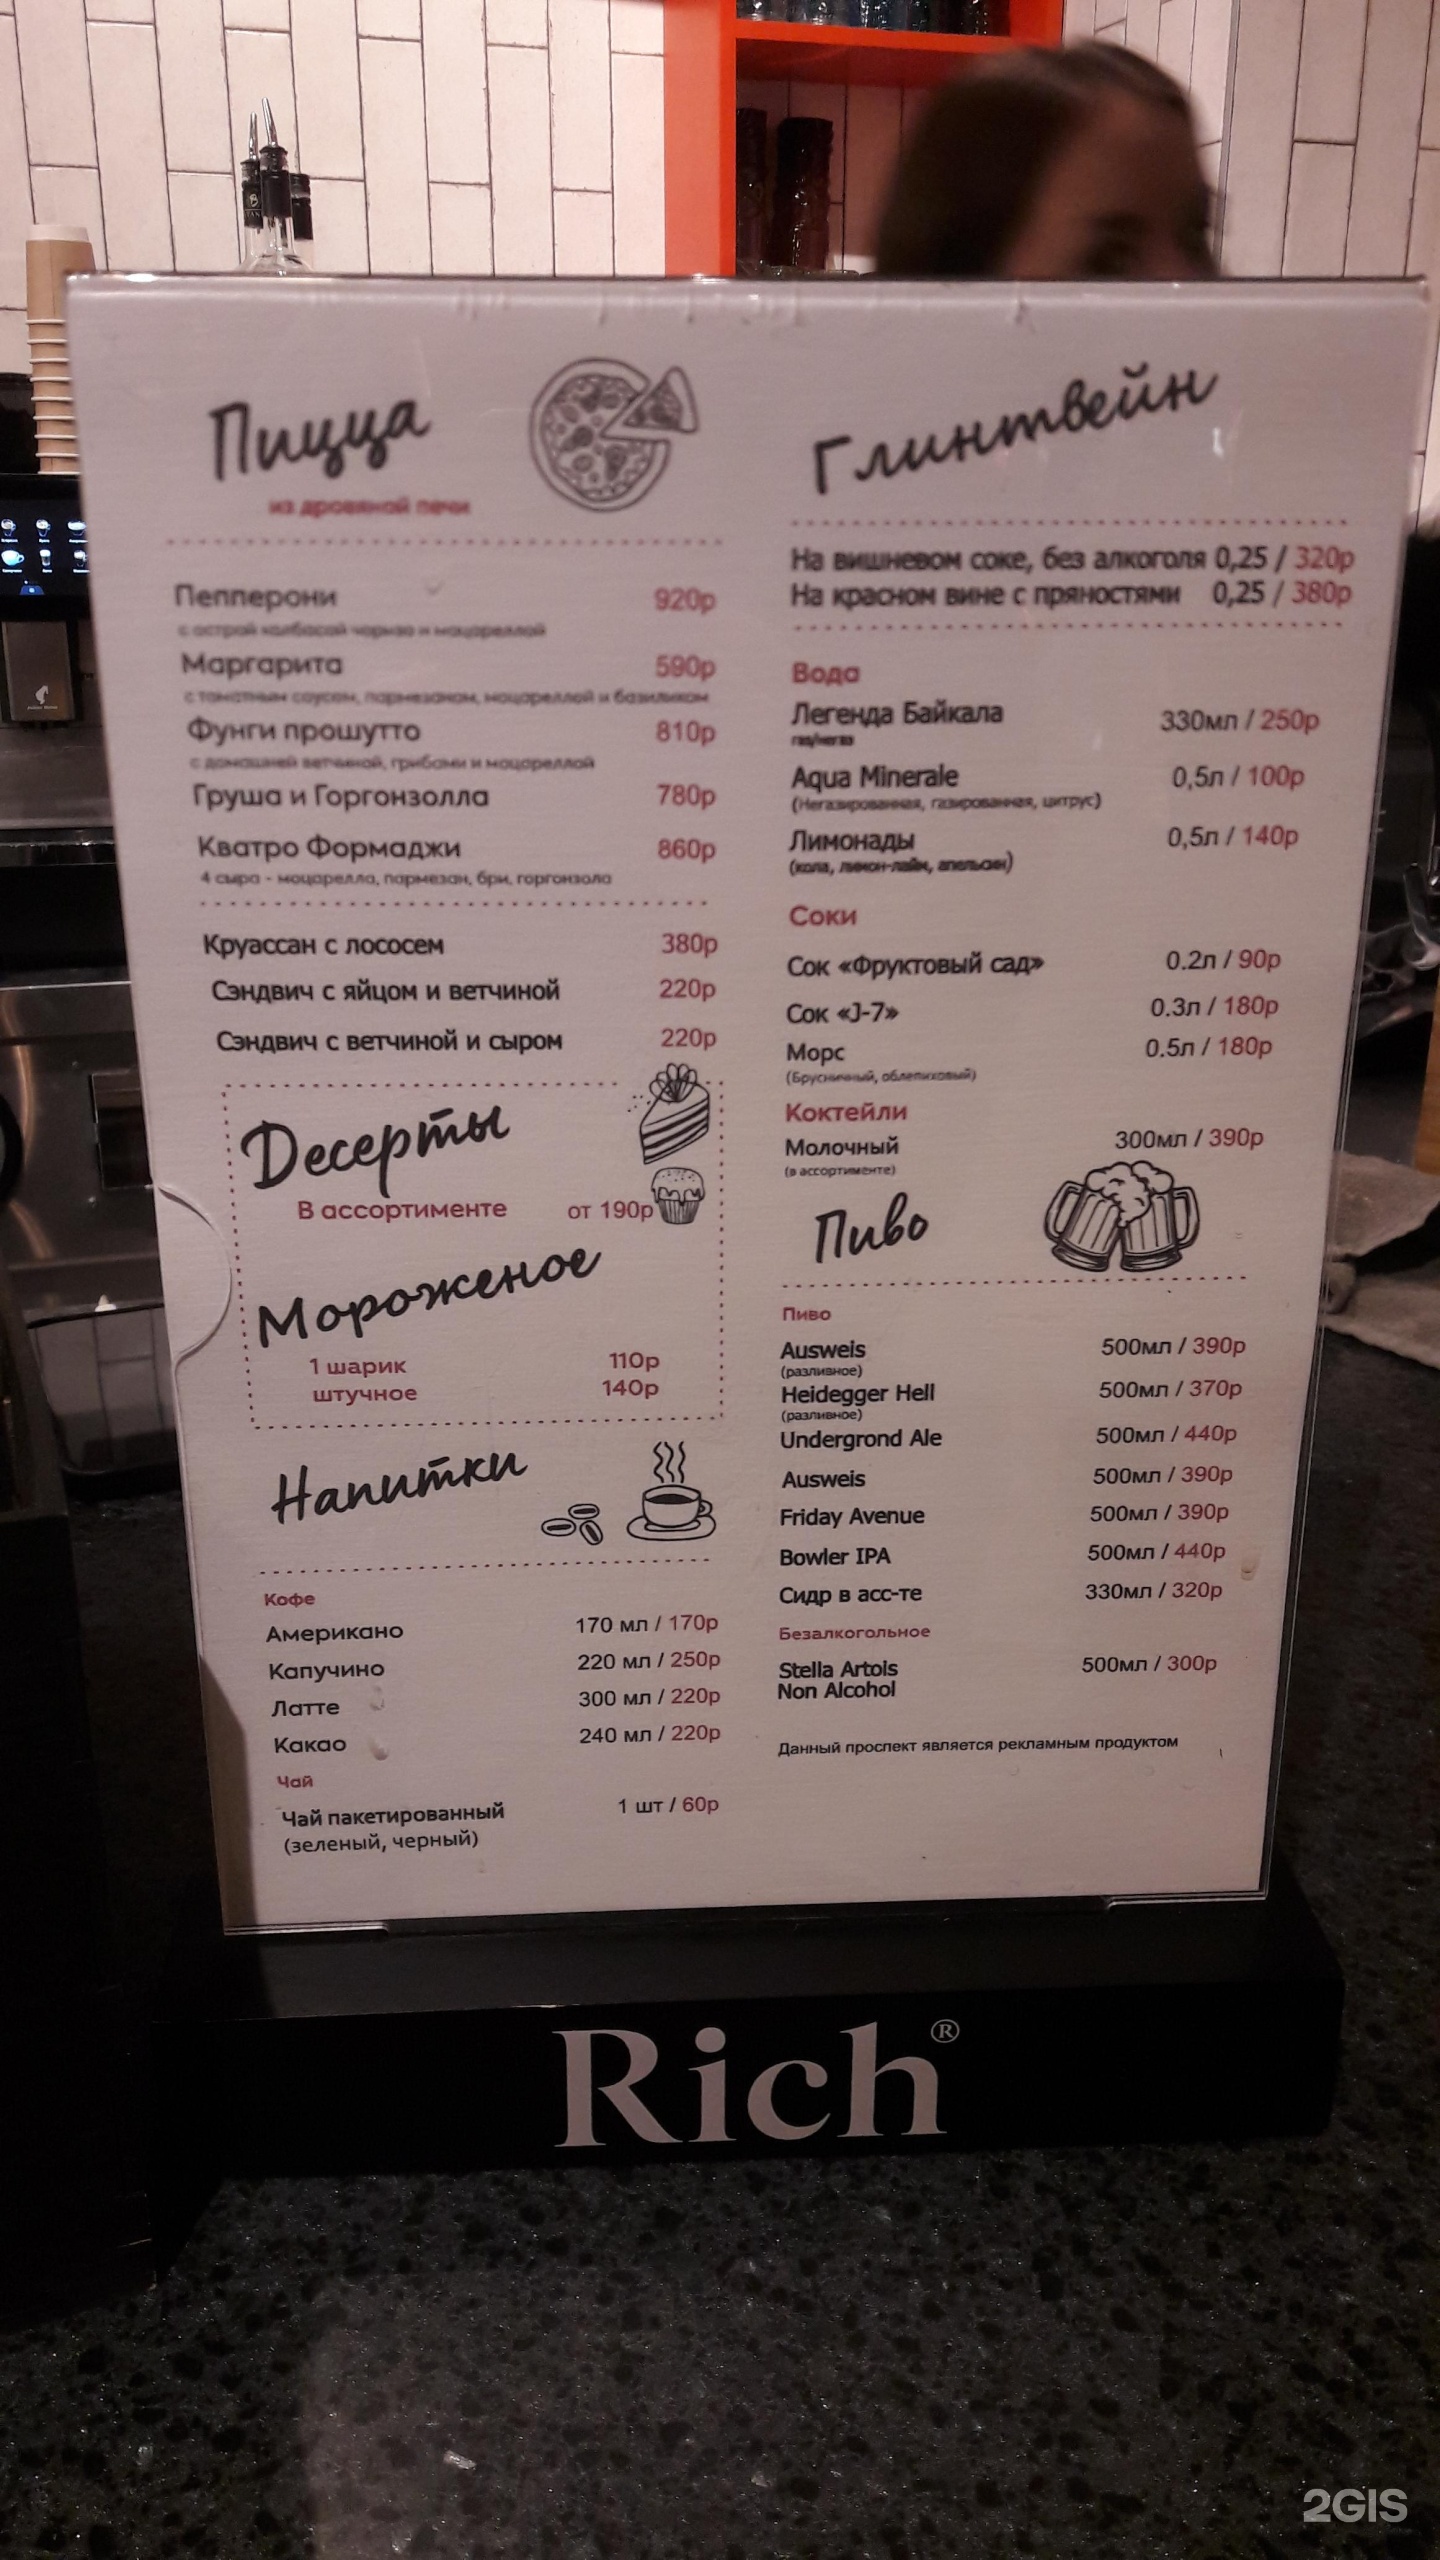 Пицца
из дровяной печи
Пепперони 920р
с острой колбасой чоризо и моцареллой
Маргарита 590р
с томатным соусом, пармезаном, моцареллой и базиликом
Фунги прошутто 810р
с домашней ветчиной, грибами и моцареллой
Груша и Горгонзолла 780р
Кватро Формаджи 860р
4 сыра - моцарелла, пармезан, бри, горгонзола
Круассан с лососем 380р
Сэндвич с яйцом и ветчиной 220р
Сэндвич с ветчиной и сыром 220р
Десерты
В ассортименте от 190р
Мороженое
1 шарик 110р
штучное 140р
Напитки
Кофе
Американо 170 мл / 170р
Капучино 220 мл / 250р
Латте 300 мл / 220р
Какао 240 мл / 220р
Чай
Чай пакетированный 1 шт / 60р
(зеленый, черный)
Глинтвейн
На вишневом соке, без алкоголя 0,25 / 320р
На красном вине с пряностями 0,25 / 380р
Вода
Легенда Байкала 330мл / 250р
газ/негаз
Aqua Minerale 0,5л / 100р
(Негазированная, газированная, цитрус)
Лимонады 0,5л / 140р
(кола, лимон-лайм, апельсин)
Соки
Сок «Фруктовый сад» 0.2л / 90р
Сок «J-7» 0.3л / 180р
Морс 0.5л / 180р
(Брусничный, облепиховый)
Коктейли
Молочный 300мл / 390р
(в ассортименте)
Пиво
Пиво
Ausweis 500мл / 390р
(разливное)
Heidegger Hell 500мл / 370р
(разливное)
Undergrond Ale 500мл / 440р
Ausweis 500мл / 390р
Friday Avenue 500мл / 390р
Bowler IPA 500мл / 440р
Сидр в асс-те 330мл / 320р
Безалкогольное
Stella Artois 500мл / 300р
Non Alcohol
Данный проспект является рекламным продуктом
Rich®
2GIS